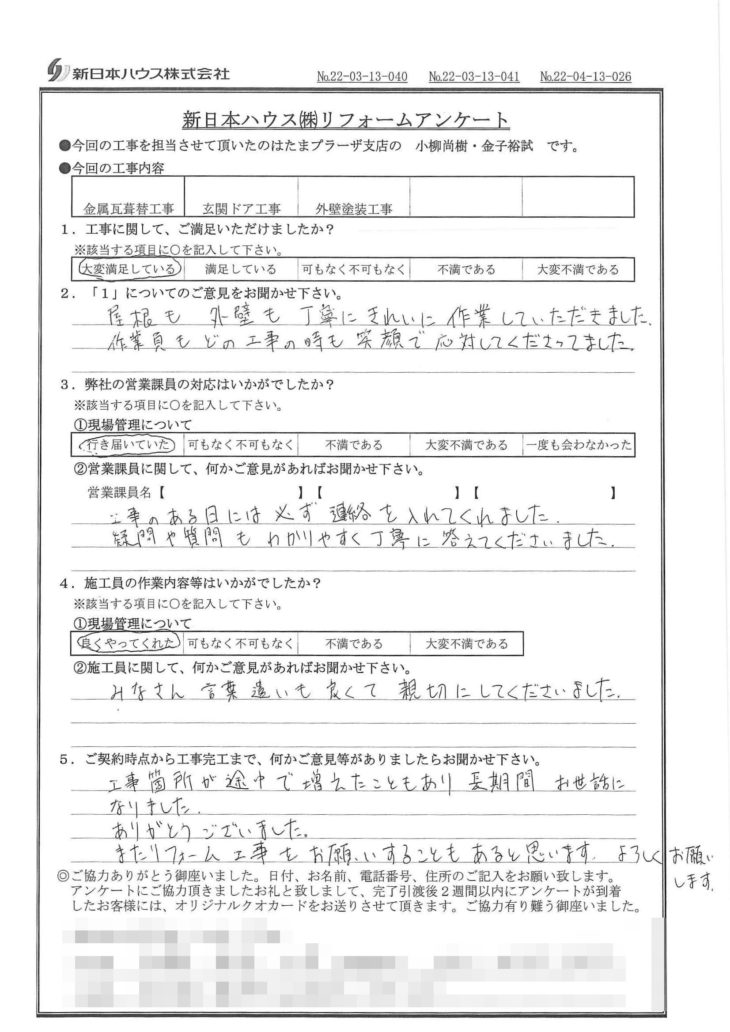 新日本ハウス株式会社 №22-03-13-040 №22-03-13-041 №22-04-13-026
新日本ハウス㈱リフォームアンケート
●今回の工事を担当させて頂いたのはたまプラーザ支店の 小柳尚樹・金子裕試 です。
●今回の工事内容
金属瓦葺替工事 玄関ドア工事 外壁塗装工事
1．工事に関して、ご満足いただけましたか？
※該当する項目に○を記入して下さい。
大変満足している 満足している 可もなく不可もなく 不満である 大変不満である
2．「1」についてのご意見をお聞かせ下さい。
屋根も 外壁も 丁寧にきれいに 作業していただきました。
作業員もどの工事の時も 笑顔で 応対してくださってました。
3．弊社の営業課員の対応はいかがでしたか？
※該当する項目に○を記入して下さい。
①現場管理について
行き届いていた 可もなく不可もなく 不満である 大変不満である 一度も会わなかった
②営業課員に関して、何かご意見があればお聞かせ下さい。
営業課員名【 】【 】【 】
工事のある日には 必ず 連絡を入れてくれました。
疑問や質問も わかりやすく丁寧に 答えてくださいました。
4．施工員の作業内容等はいかがでしたか？
※該当する項目に○を記入して下さい。
①現場管理について
良くやってくれた 可もなく不可もなく 不満である 大変不満である
②施工員に関して、何かご意見があればお聞かせ下さい。
みなさん 言葉遣いも 良くて 親切にしてくださいました。
5．ご契約時点から工事完工まで、何かご意見等がありましたらお聞かせ下さい。
工事箇所が途中で増えたこともあり 長期間 お世話に
なりました。
ありがとうございました。
またリフォーム工事をお願いすることもあると思います。よろしくお願い
します。
◎ご協力ありがとう御座いました。日付、お名前、電話番号、住所のご記入をお願い致します。
アンケートにご協力頂きましたお礼と致しまして、完了引渡後2週間以内にアンケートが到着
したお客様には、オリジナルクオカードをお送りさせて頂きます。ご協力有り難う御座いました。